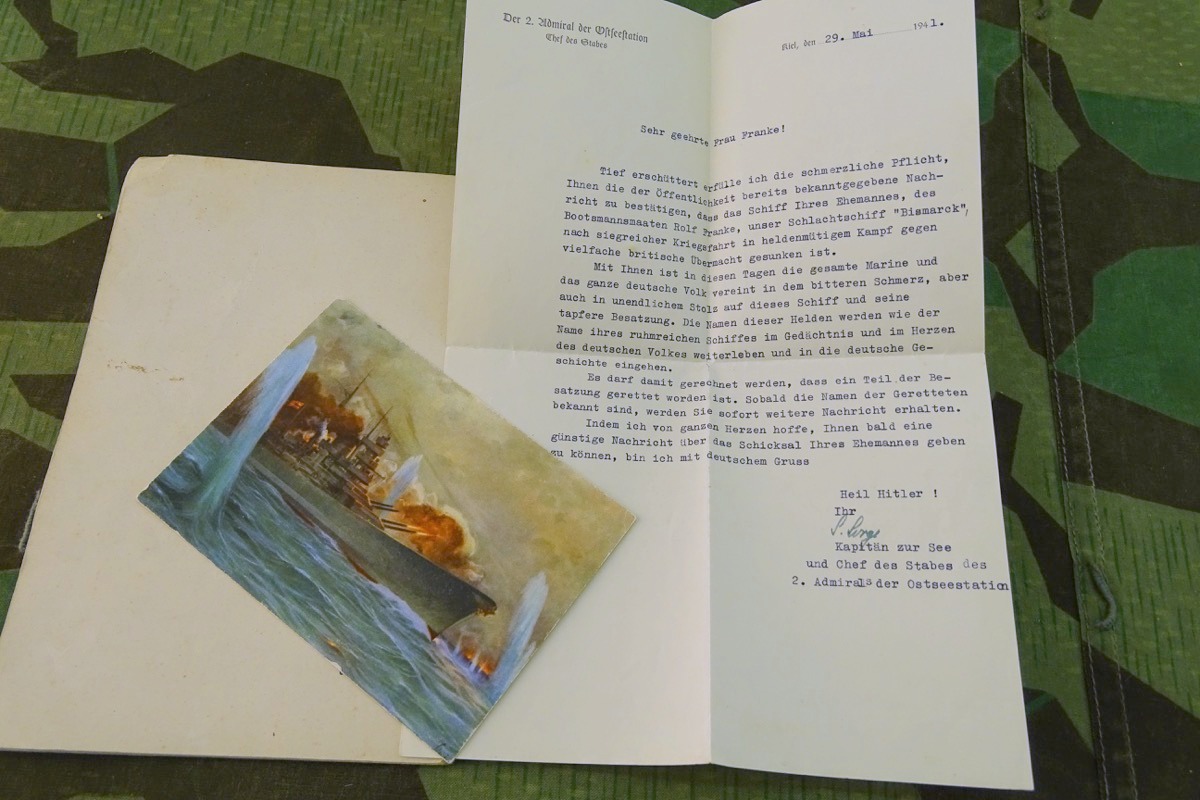 Der 2. Admiral der Ostseestation
Chef des Stabes
Kiel, den 29. Mai 1941.
Sehr geehrte Frau Franke!
Tief erschüttert erfülle ich die schmerzliche Pflicht,
Ihnen die der Öffentlichkeit bereits bekanntgegebene Nach-
richt zu bestätigen, dass das Schiff Ihres Ehemannes, des
Bootsmannsmaaten Rolf Franke, unser Schlachtschiff "Bismarck",
nach siegreicher Kriegsfahrt in heldenmütigem Kampf gegen
vielfache britische Übermacht gesunken ist.
Mit Ihnen ist in diesen Tagen die gesamte Marine und
das ganze deutsche Volk vereint in dem bitteren Schmerz, aber
auch in unendlichem Stolz auf dieses Schiff und seine
tapfere Besatzung. Die Namen dieser Helden werden wie der
Name ihres ruhmreichen Schiffes im Gedächtnis und im Herzen
des deutschen Volkes weiterleben und in die deutsche Ge-
schichte eingehen.
Es darf damit gerechnet werden, dass ein Teil der Be-
satzung gerettet worden ist. Sobald die Namen der Geretteten
bekannt sind, werden Sie sofort weitere Nachricht erhalten.
Indem ich von ganzen Herzen hoffe, Ihnen bald eine
günstige Nachricht über das Schicksal Ihres Ehemannes geben
zu können, bin ich mit deutschem Gruss
Heil Hitler !
Ihr
Kapitän zur See
und Chef des Stabes des
2. Admirals der Ostseestation